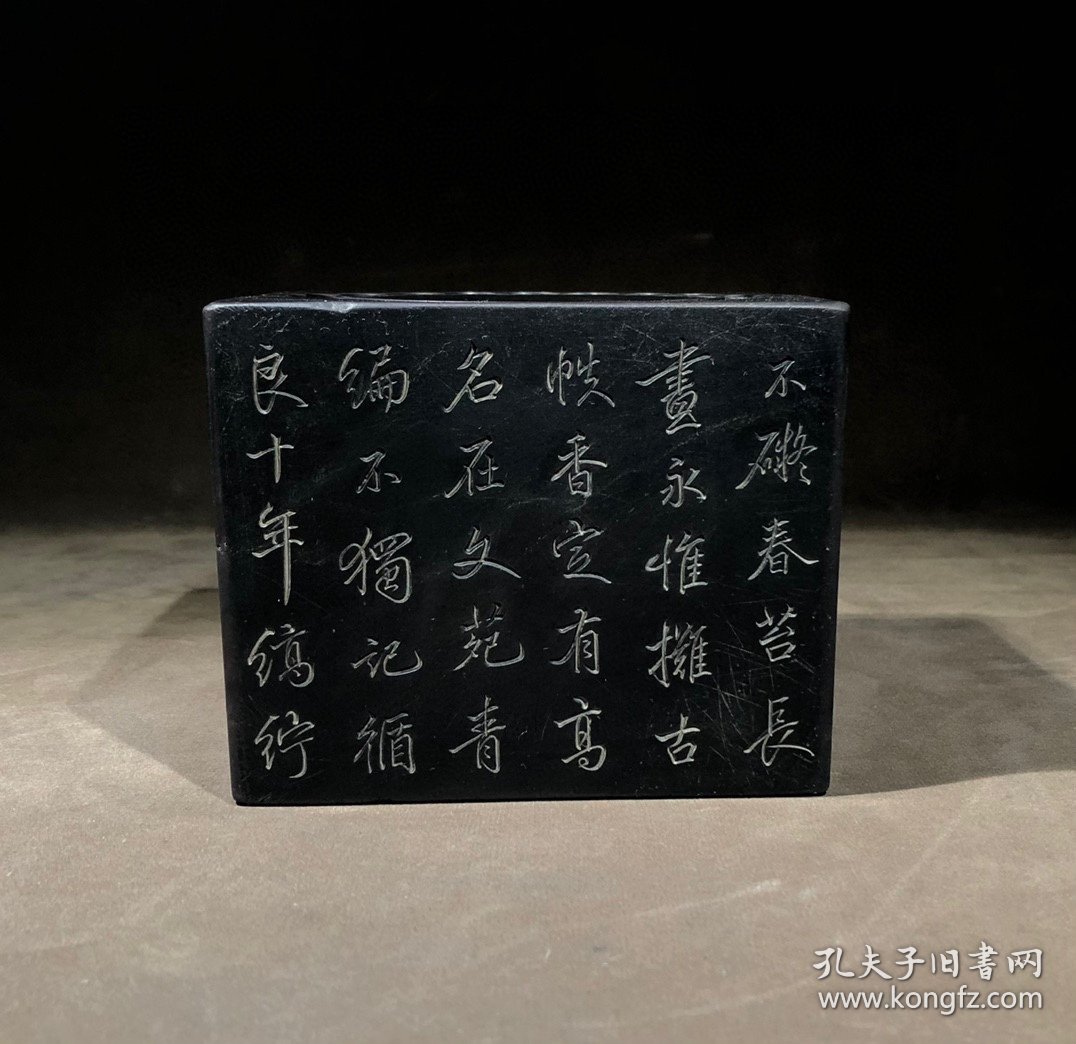 不礙春苔長
晝永惟擁古
帙香定有高
名在文苑青
編不獨記循
良十年縞紵
孔夫子旧書网
www.kongfz.com